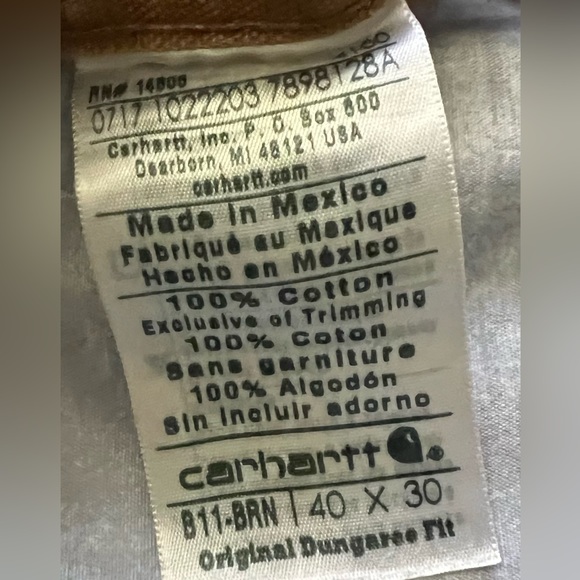 RN# 14806
0717 1022203 7898128A
Carhartt, Inc. P. O. Box 600
Dearborn, MI 48121 USA
carhartt.com
Made in Mexico
Fabriqué au Mexique
Hecho en México
100% Cotton
Exclusive of Trimming
100% Coton
Sans garniture
100% Algodón
Sin incluir adorno
carhartt ®
B11-BRN | 40 X 30
Original Dungaree Fit